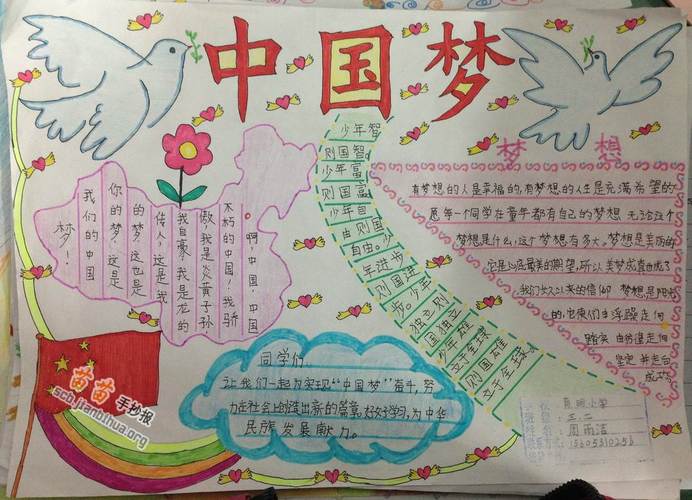 中国梦
少年智
则国智
少年富
则国富
少年自
由则国
自由。少
年进步
则国进
步。少年
独立则
国独立
少年雄
立于全球
则国雄
立于全球。
啊,中国,中国
不朽的中国!我骄
傲,我是炎黄子孙
我自豪,我是龙的
传人,这是我
的梦,这也是
你的梦,这是
我们的中国
梦!
梦想
有梦想的人是幸福的,有梦想的人生是充满希望的
愿每一个同学在童年都有自己的梦想 无论这个
梦想是什么,这个梦想有多大,梦想是美丽的
它是心底最美的期望,所以美梦成真也成了
我们长久以来的信仰 梦想是阳光
的,它使人由浮躁走向
踏实 由彷徨走向
坚定 并走向
成功
同学们:
让我们一起为实现“中国梦”奋斗,努
力在社会上创造出新的篇章,好好学习,为中华
民族发展献力。
苗苗
手抄报
scb.jianbihua.org
小学
三.二
周雨洁
15605310256